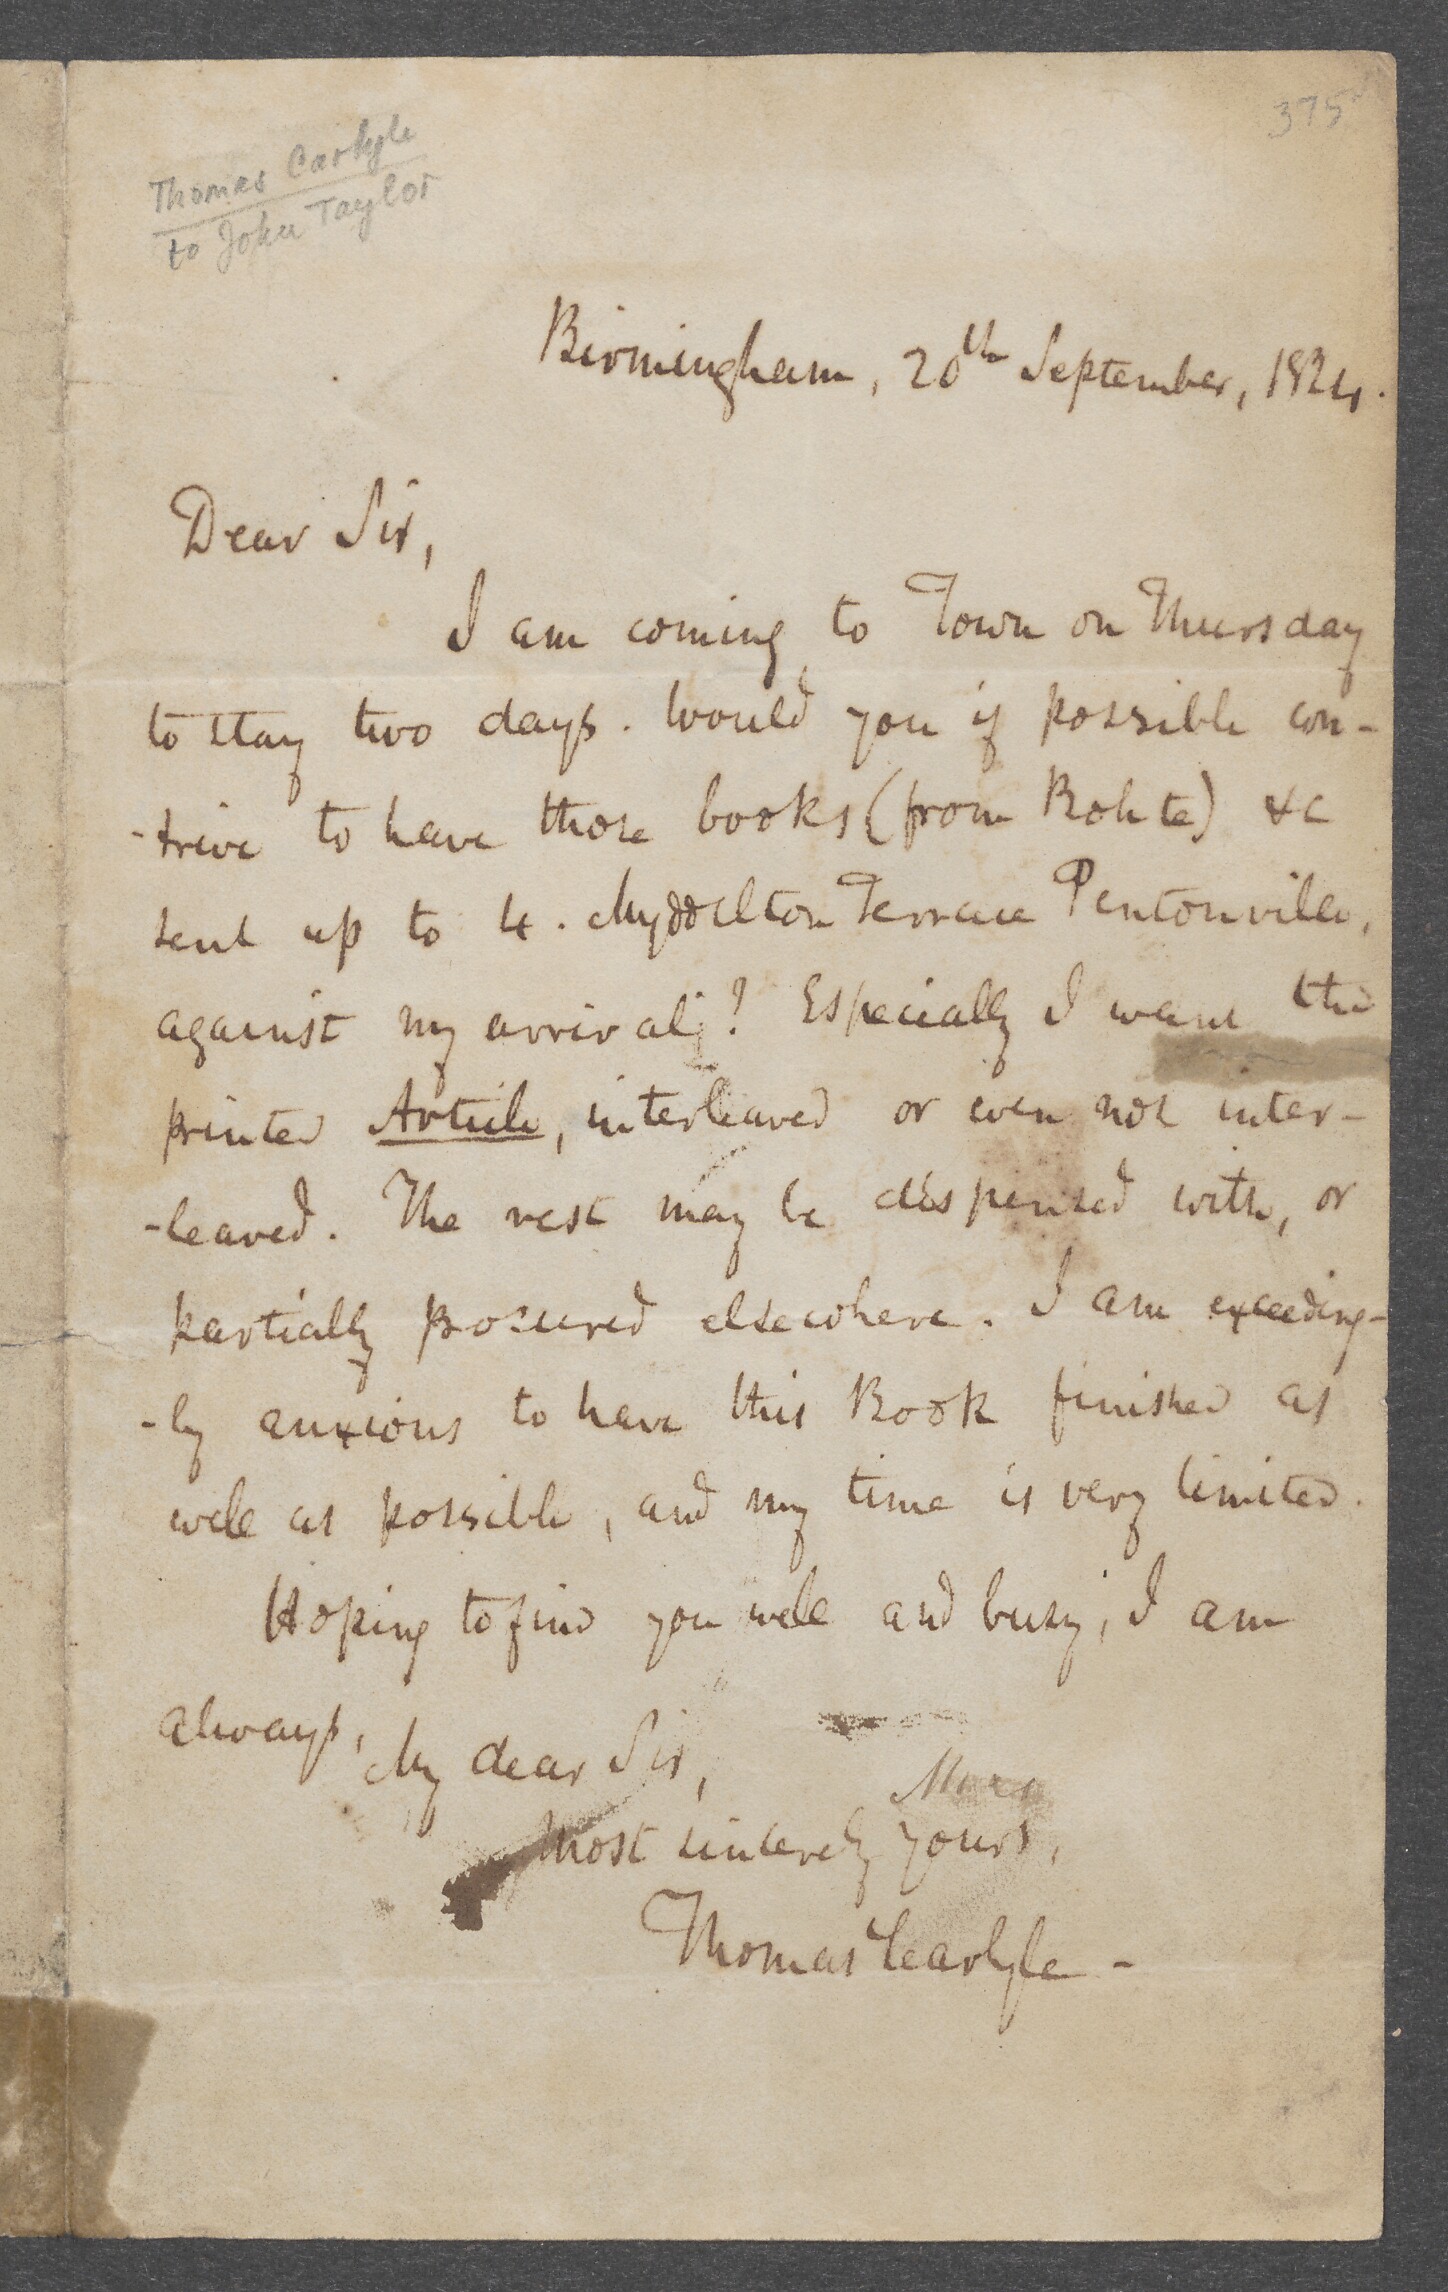 375
Thomas Carlyle
to John Taylor
Birmingham, 20th September, 1824.
Dear Sir,
I am coming to Town on Thursday
to stay two days. Would you if possible con-
-trive to have those books (from Bohte) &c
sent up to 4. Myddelton Terrace Pentonville,
against my arrival? Especially I want the
printed Article, interleaved or even not inter-
-leaved. The rest may be dispensed with, or
partially procured elsewhere. I am exceeding-
-ly anxious to have this Book finished as
well as possible, and my time is very limited.
Hoping to find you well and busy, I am
always,
My dear Sir,
Most sincerely yours,
Thomas Carlyle -